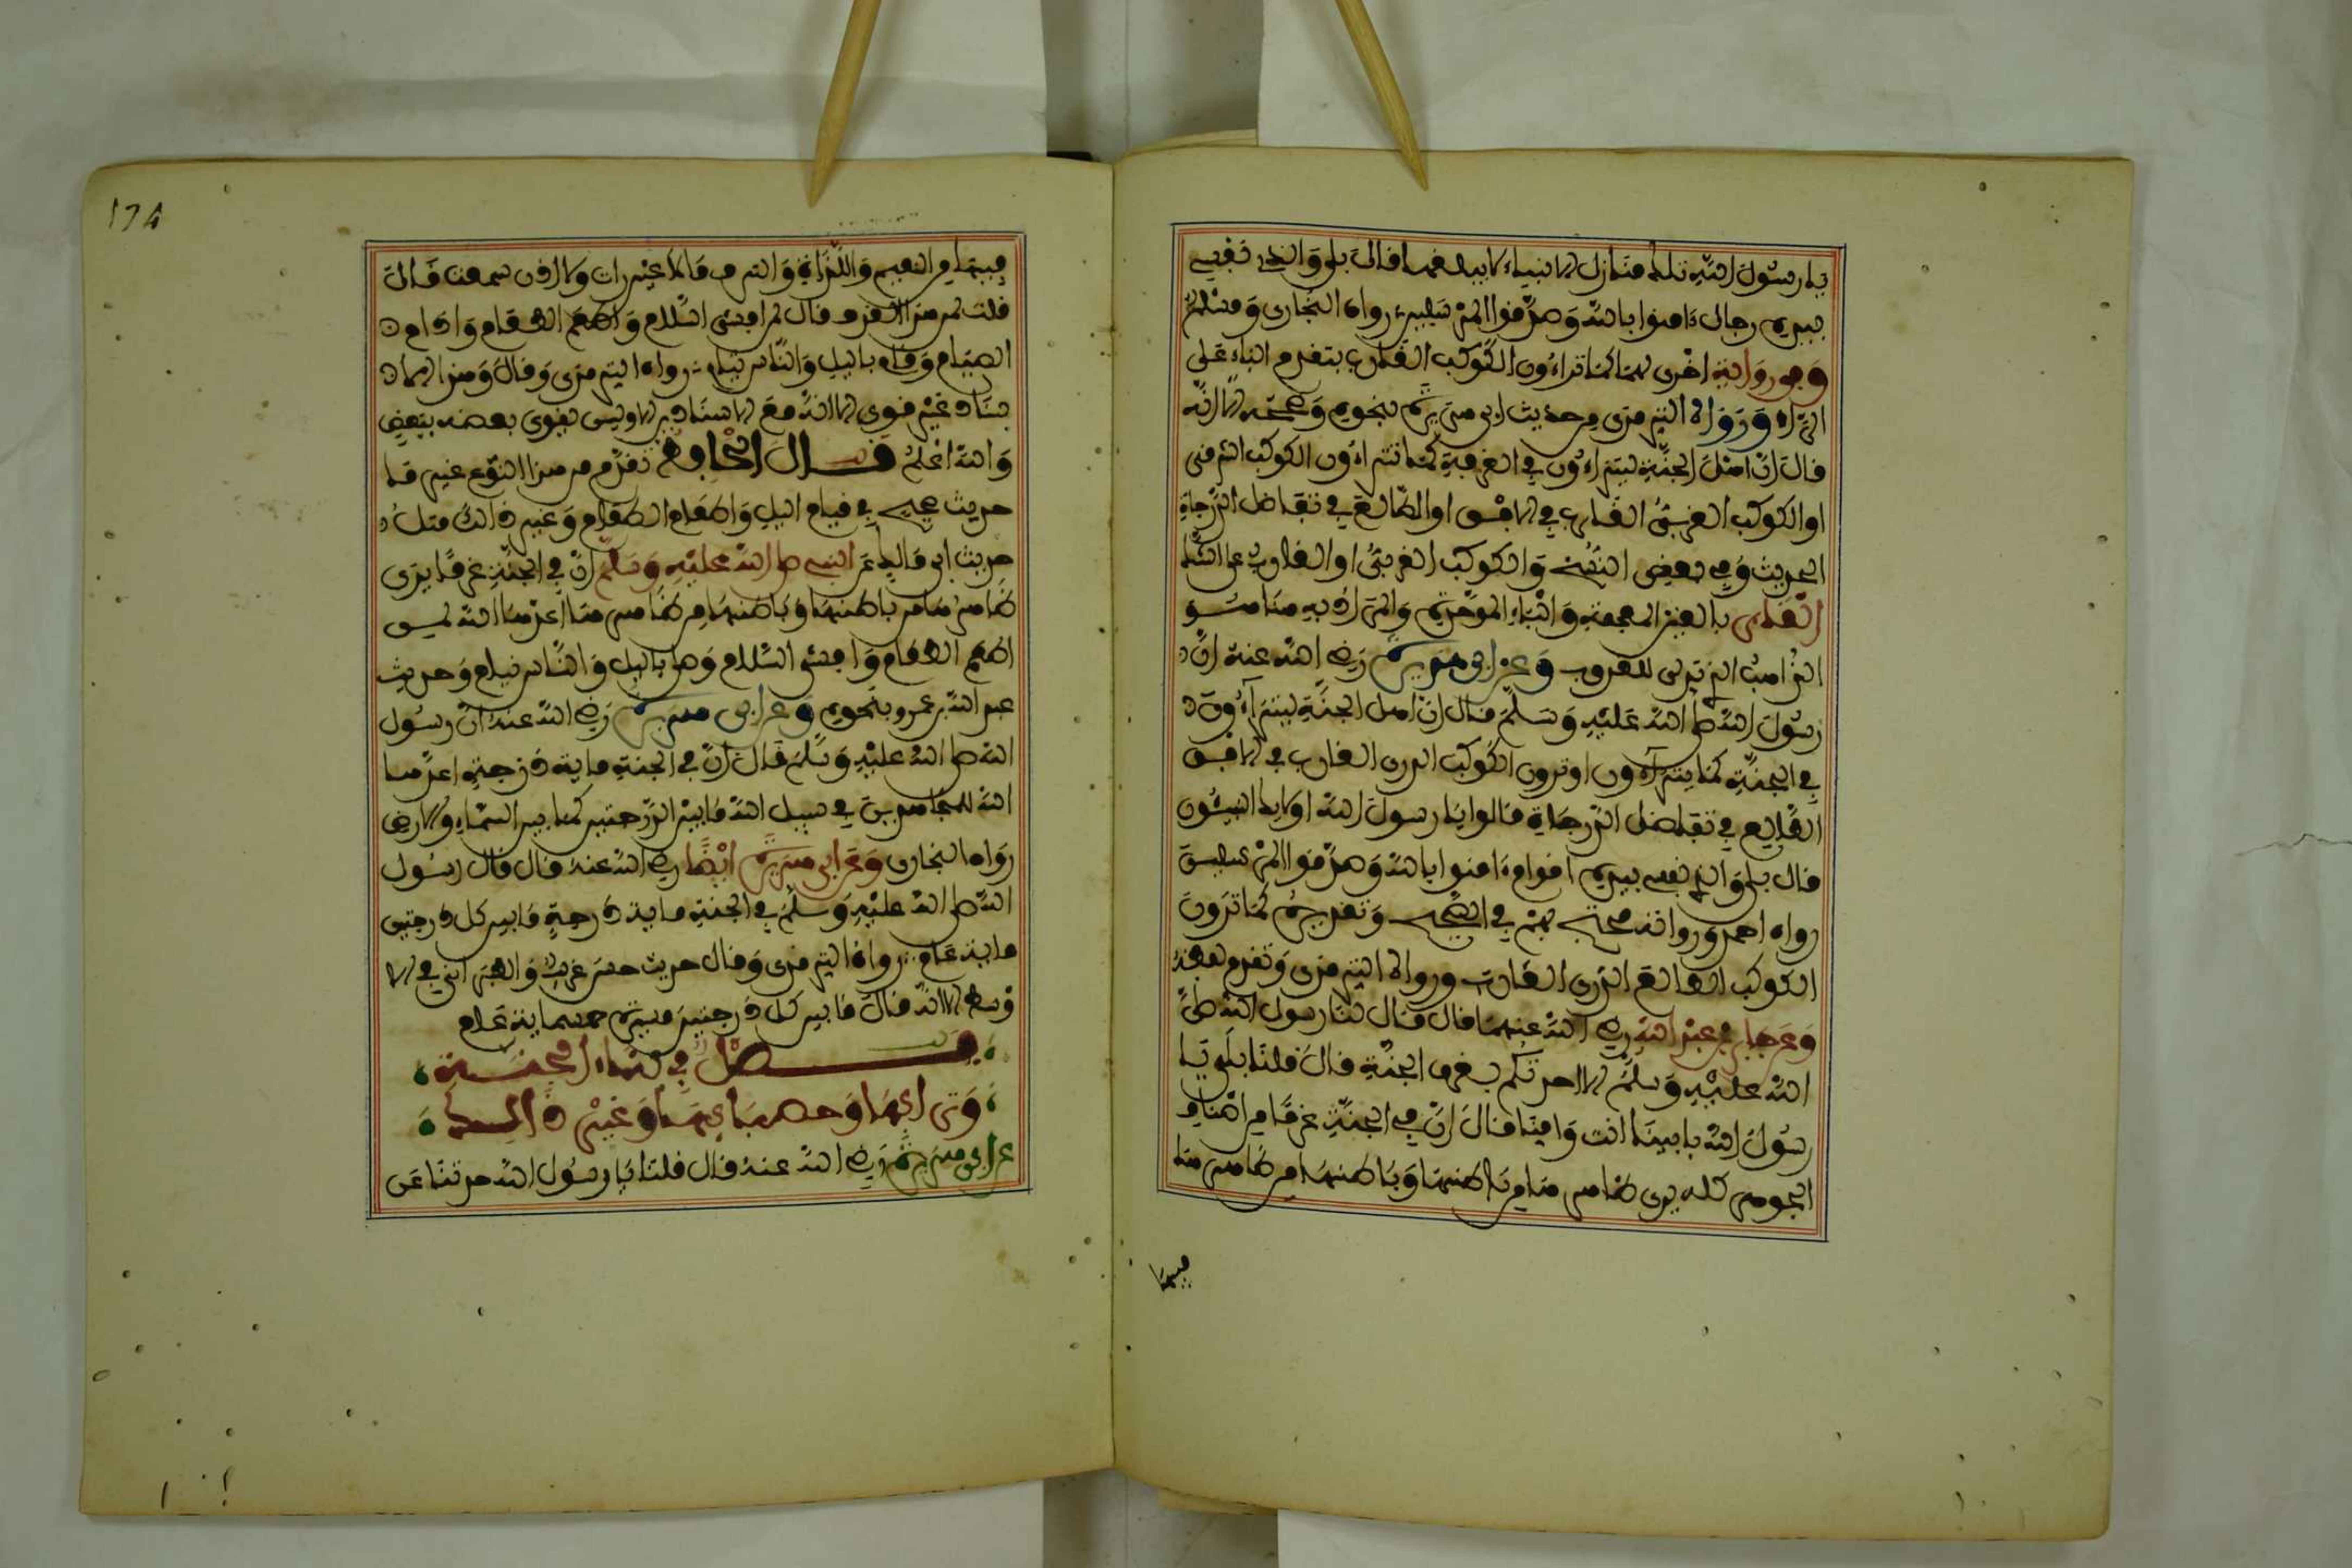 يا رسول الله تلك منازل الانبياء لا يبلغها فال بلى والذى نفسي
بيده رجال ءامنوا بالله وصدقوا المرسلين رواه البخارى ومسلم
وفي رواية اخرى لهما كما تراءون الكوكب الغارب بتقديم الباء على
الراء ورواه الترمذى من حديث ابى هريرة بنحوه وصححه الا انه
قال ان اهل الجنة ليتراءون في الغرفة كما تتراءون الكوكب الشرفى
او الكوكب الغربى الغارب في الافق او الطالع في تفاضل الدرجات
الحديث وفي بعض النسخ والكوكب الغربى او الغارب على الشك
الغابر بالغين المعجمة والباء الموحدة والمراد به هنا هو
الذاهب الذى تدلى للغروب وعن ابى هريرة رضي الله عنه ان
رسول الله صلى الله عليه وسلم قال ان اهل الجنة ليتراءون
في الجنة كما يتراءون او ترون الكوكب الدرى الغارب في الافق
الطالع في تفاضل الدرجات قالوا يا رسول الله اولايك النبيئون
قال بلى والذى نفسي بيده اقوام ءامنوا بالله وصدقوا المرسلين
رواه احمد ورواته محتج بهم في الصحيح وتقديره كما ترون
الكوكب الطالع الدرى الغارب ورواه الترمذى وتقدم لفظه
وعن جابر بن عبد الله رضي الله عنهما قال قال لنا رسول الله صلى
الله عليه وسلم الا احدثكم بغرف الجنة قال قلنا بلى يا
رسول الله بابينا انت وامنا قال ان في الجنة غرفا من اصناف
الجوهر كله يرى ظاهرها من باطنها وباطنها من ظاهرها
فيها
174
فيها من النعيم واللذات والشرف ما لا عين رات ولا اذن سمعت قال
قلت لمن هذا الغرف قال لمن افشى السلام واطعم الطعام وادام
الصيام وصلى باليل والناس نيام رواه الترمذى وقال وهذا الا
سناد غير قوي الا انه مع الاسنادين الاوليين يقوى بعضه ببعض
والله اعلم قال الحافظ تقدم من هذا النوع غير ما
حديث صحيح في قيام اليل واطعام الطعام وغير ذالك مثل
حديث ابى مالك عن النبي صلى الله عليه وسلم ان في الجنة غرفا يرى
ظاهرها من باطنها وباطنها من ظاهرها اعدها الله لمن
اطعم الطعام وافشى السلام وصلى باليل والناس نيام وحديث
عبد الله بن عمرو بنحوه وعن ابى هريرة رضي الله عنه ان رسول
الله صلى الله عليه وسلم قال ان في الجنة ماية درجة اعدها
الله للمجاهدين في سبيل الله ما بين الدرجتين كما بين السماء والارض
رواه البخارى وعن ابى هريرة ايضا رضي الله عنه قال قال رسول
الله صلى الله عليه وسلم في الجنة ماية درجة ما بين كل درجتين
ماية عام رواه الترمذى وقال حديث حسن غريب والطبرانى في الا
وسط الا انه قال ما بين كل درجتين مسيرة خمسماية عام
فصل في بناء الجنة
وترابها وحصبايها وغير ذالك
عن ابى هريرة رضي الله عنه قال قلنا يا رسول الله حدثنا عن